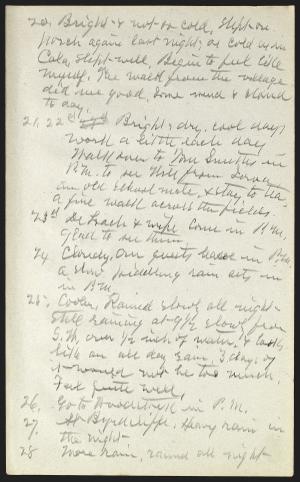 20, Bright & not so cold, slept on
porch again last night; as cold as in
Cala, slept well, Begin to feel like
myself, The walk from the village
did me good, Some wind & cloud
to day.
21, 22 Bright, dry, cool days
work a little each day
Walk over to Smiths in
P.M. to see from
an old school mate, & stay to tea
a fine walk across the fields.
23d De Loach & wife come in P.M.
glad to see them
24 Cloudy, Our guests leave in P.M.
a slow drizzling rain sets in
in P.M.
25, Cooler, Rained slowly all night
still raining at 9½ slowly from
S.W. over ½ inch of water, & looks
like an all day rain, 3 days of
it would not be too much.
Feel quite well,
26, Go to Woodstock in P.M.
27, At Byrdcliffe, Heavy rain in
the night
28 More rain, rained all night